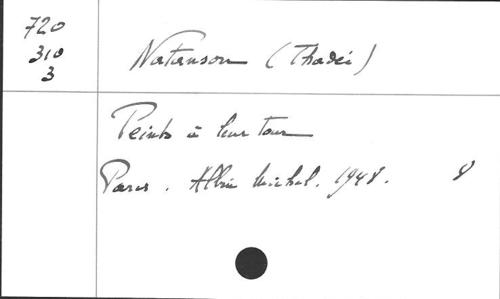 720
310
3
Natanson (Thadei)
Peints à leur tour
Paris. Albin Michel. 1948. 8